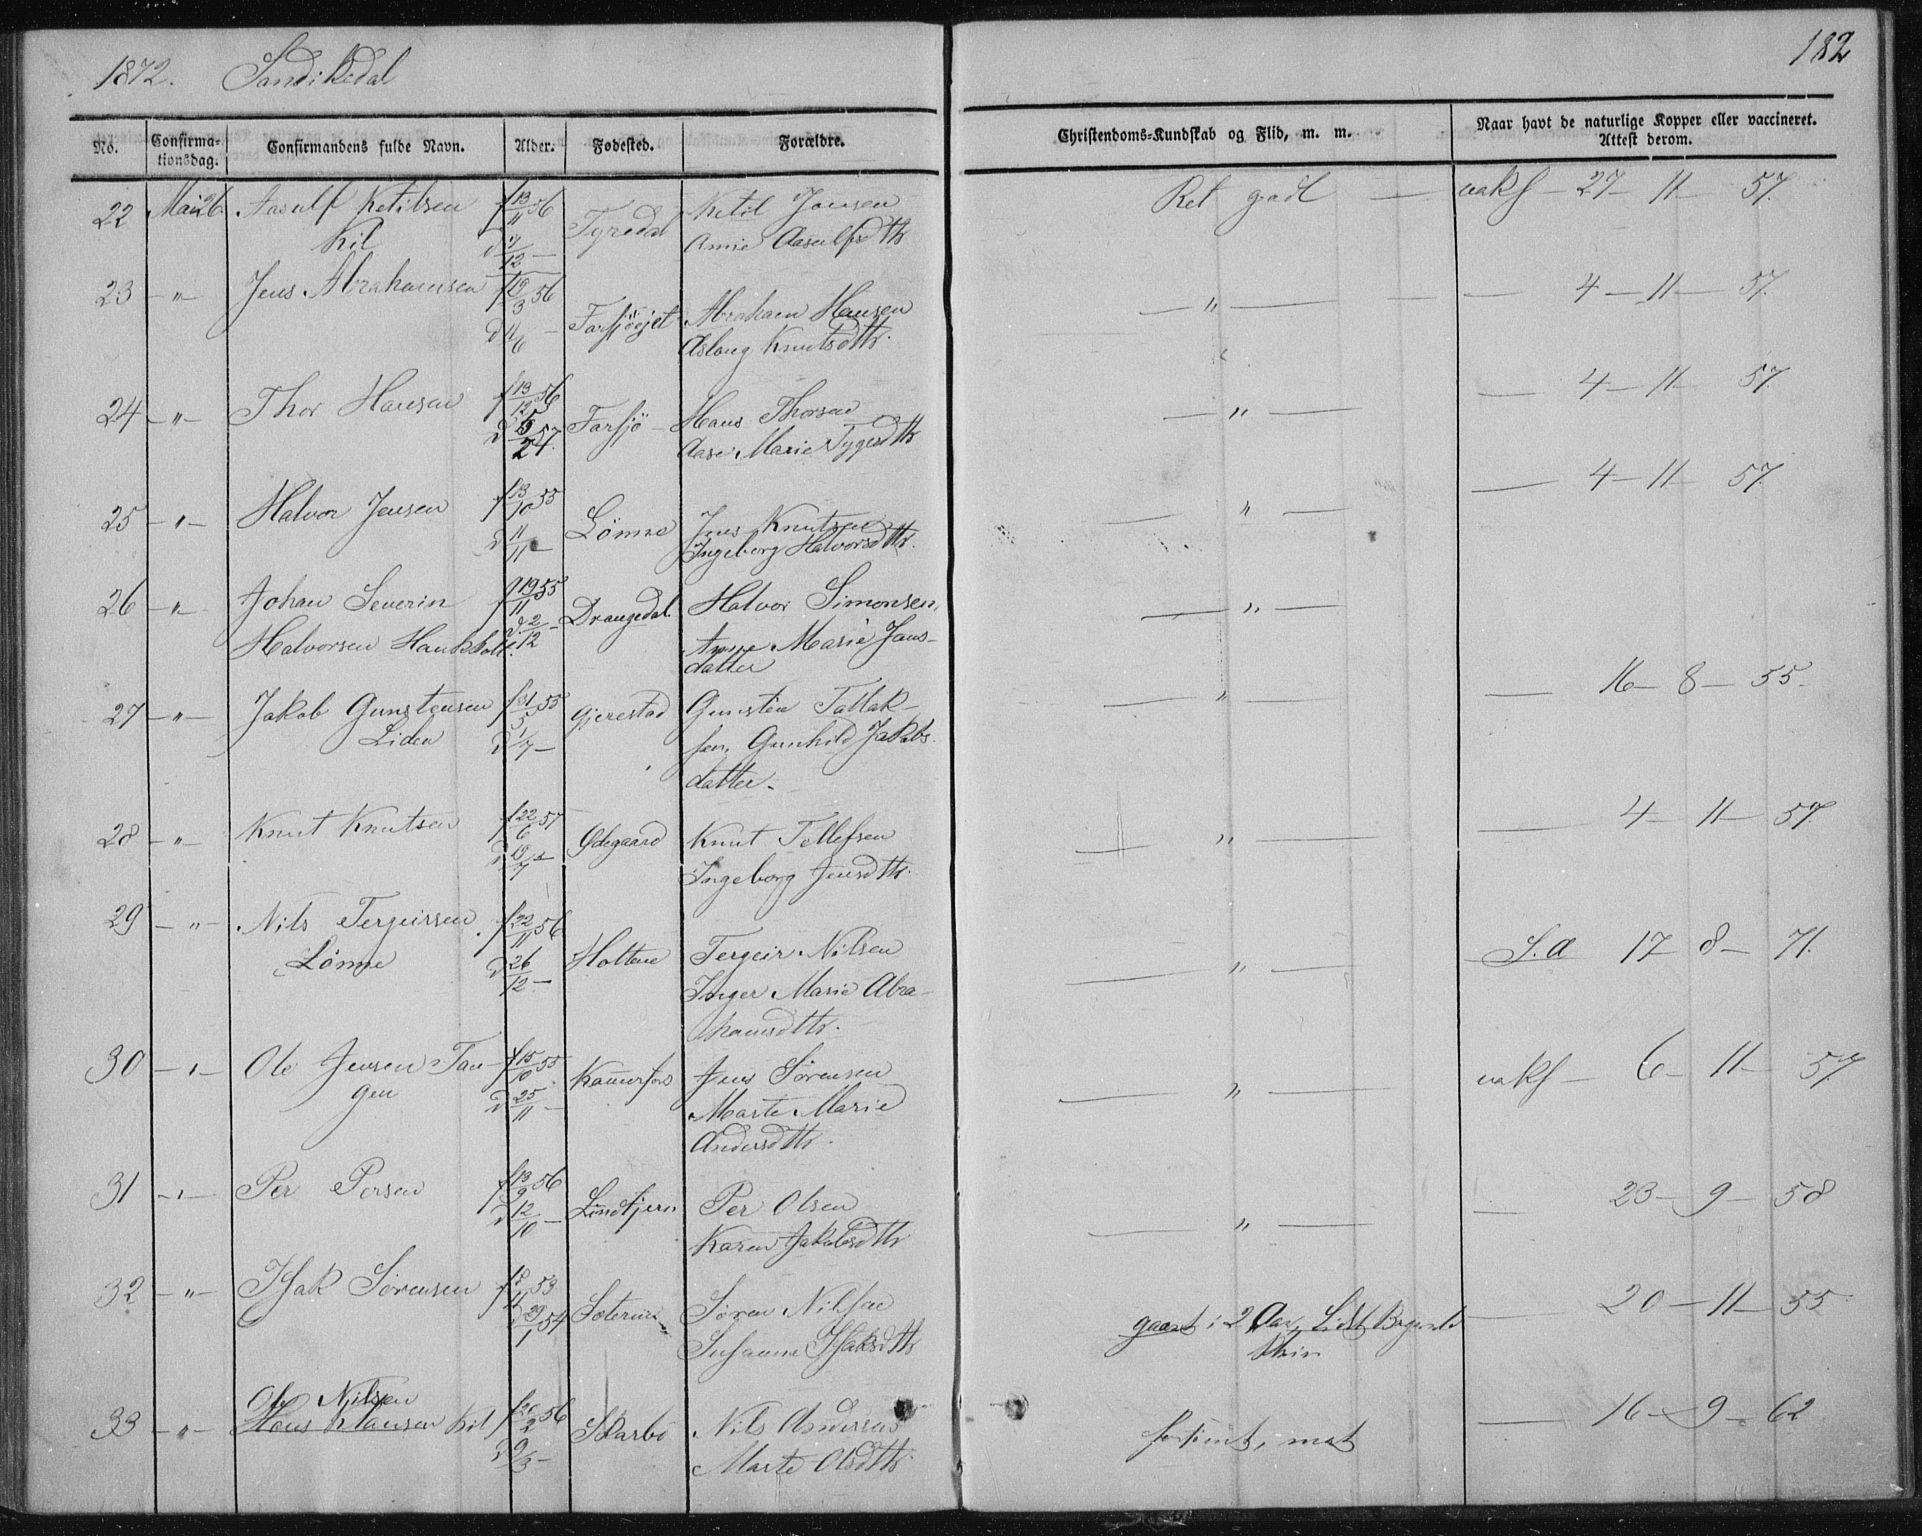 1872. Sandikedal
182
No. Confirmationsdag. Confirmandens fulde Navn. Alder. Fødested. Forældre. Christendoms-Kundskab og Flid, m. m. Naar havt de naturlige Kopper eller vaccineret. Attest derom.
22 Mai 26 Aasulf Ketilsen f 13/11 56 Tyredal Ketil Jonsen Ret godt — vaks — 27 — 11 — 57.
Kil d /12 — Aasulfsdtr
23 — " — Jens Abrahamsen f 19/3 56 Abraham Hansen — " — — 4 — 11 — 57.
d /6 — Aslaug Knutsdtr.
24 — " — Thor Hansen f 13/12 56 Farsjø — Hans Thorsen — " — — 4 — 11 — 57.
d 5/2 57. Aase Marie Tygesdtr
25 — " — Halvor Jensen f 13/10 55 Lønne Jens Knutsen — " — — 4 — 11 — 57.
d 11/11 — Ingeborg Halvorsdtr.
26 — " — Johan Severin f 19/11 55 Drangedal Halvor Simonsen, — " —
Halvorsen d 2/12 — Anne Marie Jans-
datter
27 — " — Jakob Gunstensen f 31/5 55 Gjerestad Gunsten Tallak- — " — — 16 — 8 — 55.
Liden d 1/7 — sen, Gunhild Jakobs-
datter.
28 — " — Knut Knutsen f 22/6 57 Ødegaard Knut Tellefsen — " — — 4 — 11 — 57.
d /7 — Ingeborg Jensdtr.
29 — " — Nils Tergeirsen f 22/11 56 Holtene Tergeir Nilsen — " — S. a 17 — 8 — 71.
Lønne d 26/12 — Inger Marie Abra-
hamsdtr.
30 — " — Ole Jensen Tan- f 15/10 55 Kammerfos Jens Sørensen — " — vakf — 6 — 11 — 57
gen d 25/11 — Marte Marie
Andersdtr.
31 — " — Per Persen f 13/9 56 Lindtjern Per Olsen — " — — 23 — 9 — 58
d 12/10 — Karen Jakobsdtr
32 — " — Isak Sørensen f 53 Søren Nilsen gaaet i 2 Aar, Lidt — 20 — 11 — 55
d 29/1 54 Susanne Isaksdtr
Ole Nilsen
33 — " — Hans Hansen Kil f 20/2 56 Skarbo Nils Andersen forsømt, mat — 16 — 9 — 62
d 9/3 — Marte Olsdtr.